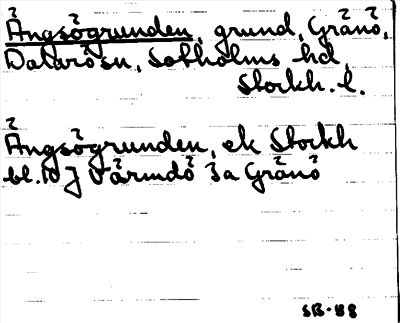 Ängsögrunden, grund, Gränö,
Dalarö sn, Sotholms hd,
Stockh. l.
Ängsögrunden, ek Stockh
bl. 10 J Värmdö 3a Gränö
SB-88